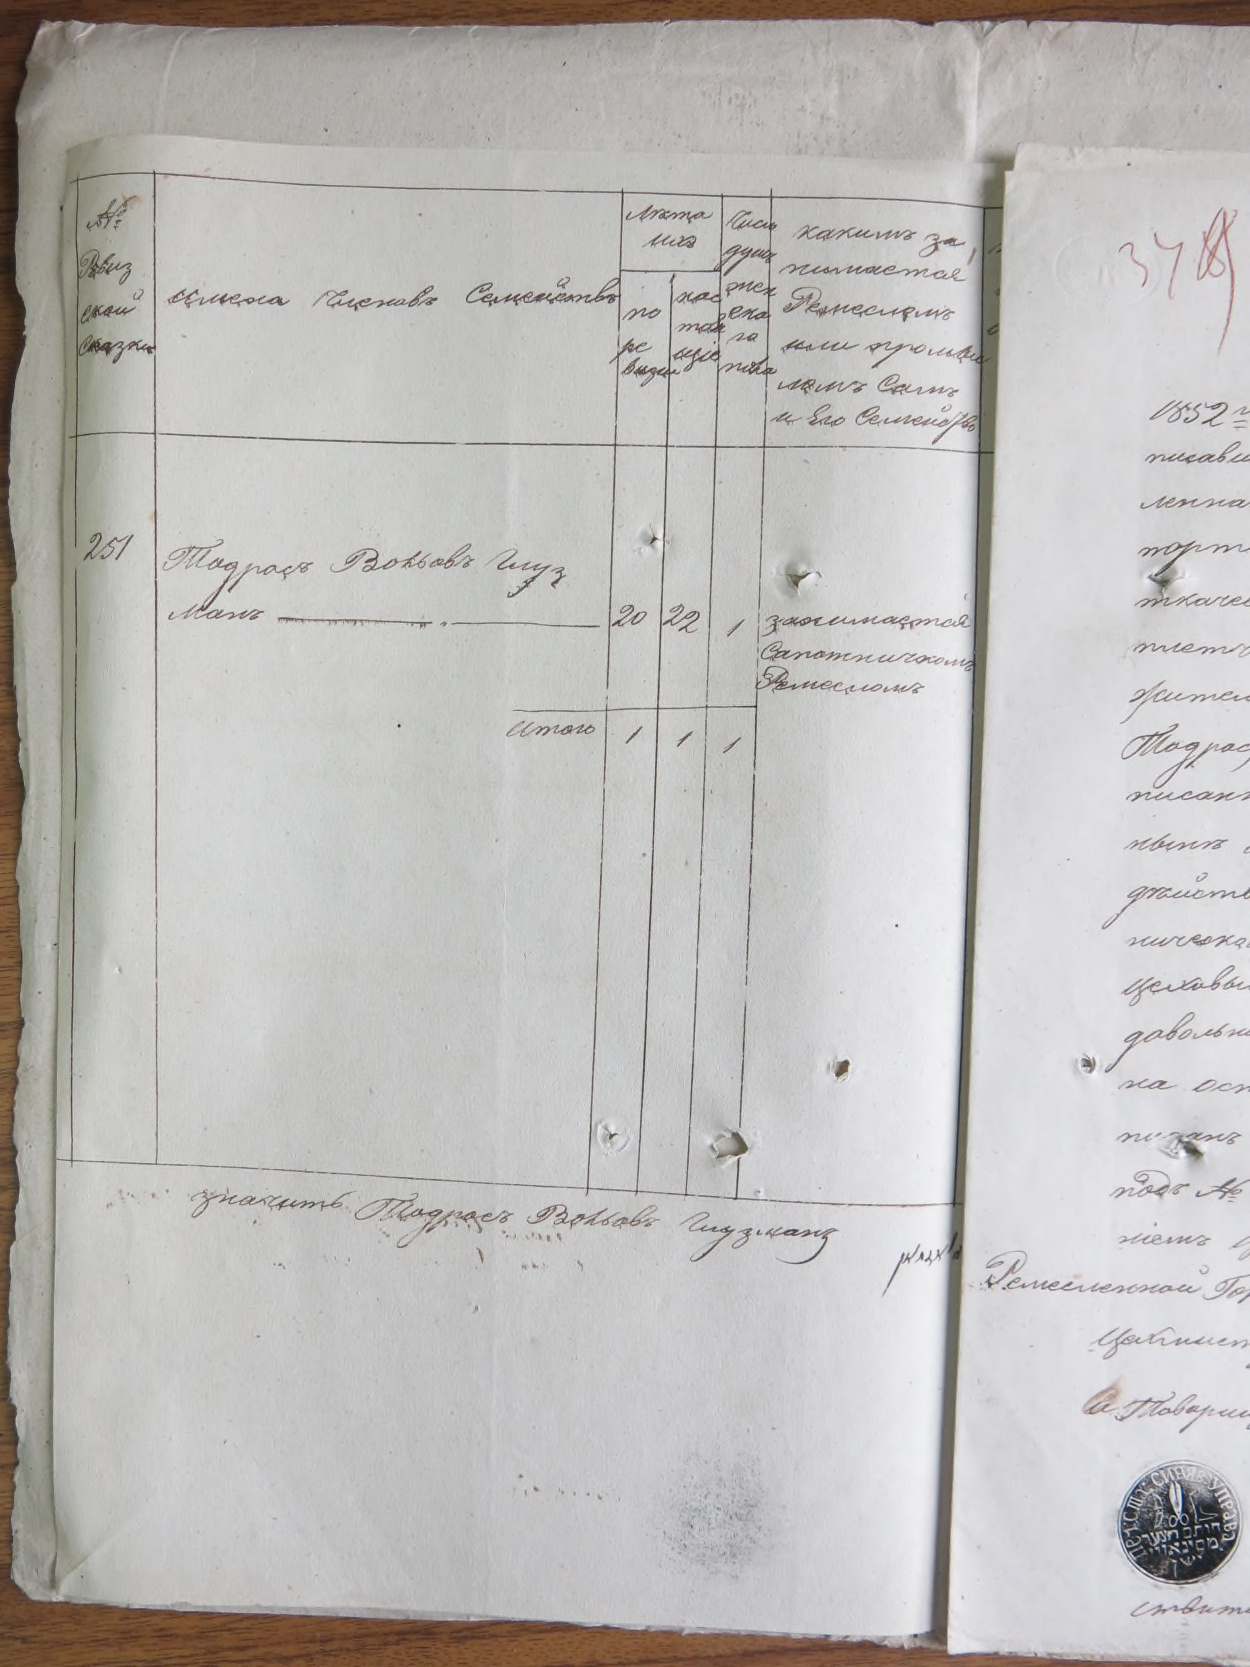 №
Ревиз
ской
сказки
имена Членовъ Семействъ
Лѣта
ихъ
по
ре
визіи
нас
тоя
щіе
Число
душъ
жен
ска
го
пола
какимъ за
нимается
Ремесломъ
или промыс
ломъ Самъ
и Его Семейство
251
Тодросъ Вольовъ Глуз
манъ
20 22 1
занимается
Сапожничкомъ
Ремесломъ
Итого 1 1 1
значитъ Тодросъ Вольовъ Глузманъ
34
1852 г
писавш
ленна
порт
ткаче
плеть
жител
Тодрос
писан
нымъ
дѣйств
ническа
Цеховы
довольн
на осн
подъ №
ніемъ
Ремесленной Гор
Цехмист
и Товарищ
СИНЯВ УПРАВА